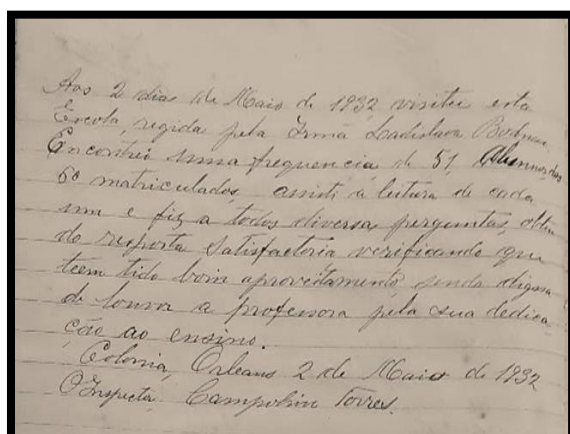 Aos 2 dias de Maio de 1932 visitei esta
Escola, regida pela Irmã Ladislava
Encontrei uma frequencia de 51, Alumnos, dos
60 matriculados, assisti a leitura de cada
um e fiz a todos diversa perguntas, obten
do resposta satisfactoria verificando que
teem tido bom aproveitamento, sendo digna
de louvor a professora pela sua dedica
ção ao ensino.
Colonia, Orleans 2 de Maio de 1932
O Inspector Campolim Torres.